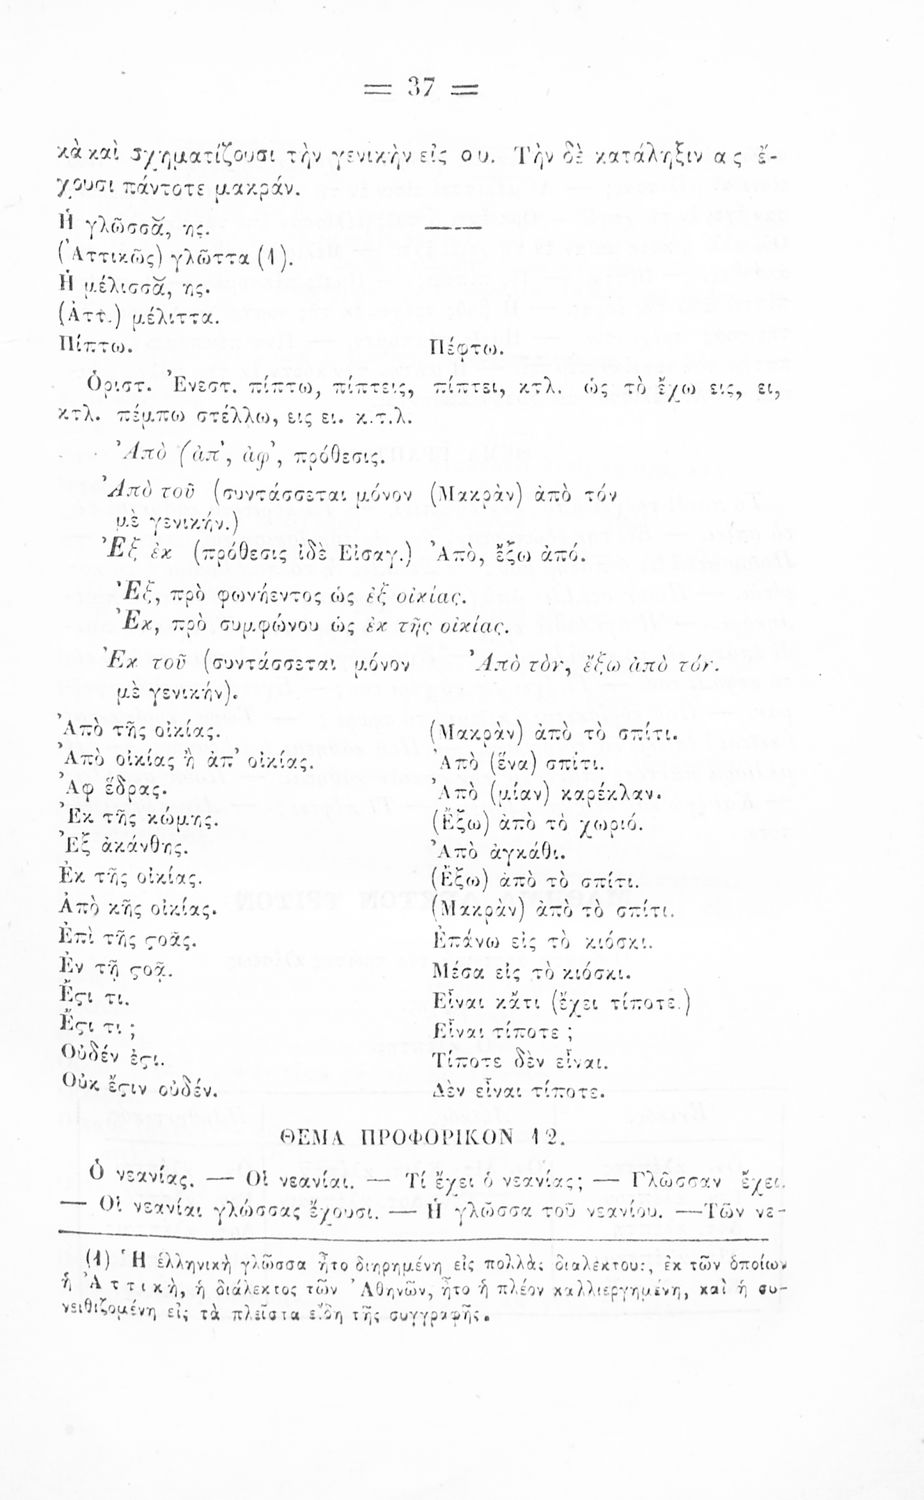 = 37 =
κὰ καὶ σχηματίζουσι τὴν γενικὴν εἰς ου. Τὴν δὲ κατάληξιν ας ἔ-
χουσι πάντοτε μακράν.
Ἡ γλῶσσᾰ, ης. ———
(Ἀττικῶς) γλῶττα (1).
Ἡ μέλισσᾰ, ης.
(Ἀττ.) μέλιττα.
Πίπτω. Πέφτω.
Ὁριστ. Ἐνεστ. πίπτω, πίπτεις, πίπτει, κτλ. ὡς τὸ ἔχω εις, ει,
κτλ. πέμπω στέλλω, εις ει. κ.τ.λ.
Ἀπὸ (ἀπ', ἀφ', πρόθεσις.
Ἀπὸ τοῦ (συντάσσεται μόνον (Μακρὰν) ἀπὸ τόν
μὲ γενικήν.)
Ἐξ ἐκ (πρόθεσις ἰδὲ Εἰσαγ.) Ἀπὸ, ἔξω ἀπό.
Ἐξ, πρὸ φωνήεντος ὡς ἐξ οἰκίας.
Ἐκ, πρὸ συμφώνου ὡς ἐκ τῆς οἰκίας.
Ἐκ τοῦ (συντάσσεται μόνον Ἀπὸ τὸν, ἔξω ἀπὸ τόν.
μὲ γενικήν).
Ἀπὸ τῆς οἰκίας. (Μακρὰν) ἀπὸ τὸ σπίτι.
Ἀπὸ οἰκίας ἢ ἀπ' οἰκίας. Ἀπὸ (ἕνα) σπίτι.
Ἀφ ἕδρας. Ἀπὸ (μίαν) καρέκλαν.
Ἐκ τῆς κώμης. (Ἔξω) ἀπὸ τὸ χωριό.
Ἐξ ἀκάνθης. Ἀπὸ ἀγκάθι.
Ἐκ τῆς οἰκίας. (Ἔξω) ἀπὸ τὸ σπίτι.
Ἀπὸ κῆς οἰκίας. (Μακρὰν) ἀπὸ τὸ σπίτι.
Ἐπὶ τῆς ϛοᾶς. Ἐπάνω εἰς τὸ κιόσκι.
Ἐν τῇ ϛοᾷ. Μέσα εἰς τὸ κιόσκι.
Ἔϛι τι. Εἶναι κᾶτι (ἔχει τίποτε.)
Ἔϛι τι ; Εἶναι τίποτε ;
Οὐδέν ἐϛι. Τίποτε δὲν εἶναι.
Οὐκ ἔϛιν οὐδέν. Δὲν εἶναι τίποτε.
ΘΕΜΑ ΠΡΟΦΟΡΙΚΟΝ 12.
Ὁ νεανίας. — Οἱ νεανίαι. — Τί ἔχει ὁ νεανίας; — Γλῶσσαν ἔχει.
— Οἱ νεανίαι γλώσσας ἔχουσι. — Ἡ γλῶσσα τοῦ νεανίου. —Τῶν νε-
(1) Ἡ ἑλληνικὴ γλῶσσα ἦτο διῃρημένη εἰς πολλὰς διαλέκτους, ἐκ τῶν ὁποίων
ἡ Ἀττικὴ, ἡ διάλεκτος τῶν Ἀθηνῶν, ἦτο ἡ πλέον καλλιεργημένη, καὶ ἡ συ-
νειθιζομένη εἰς τὰ πλεῖστα εἴδη τῆς συγγραφῆς.